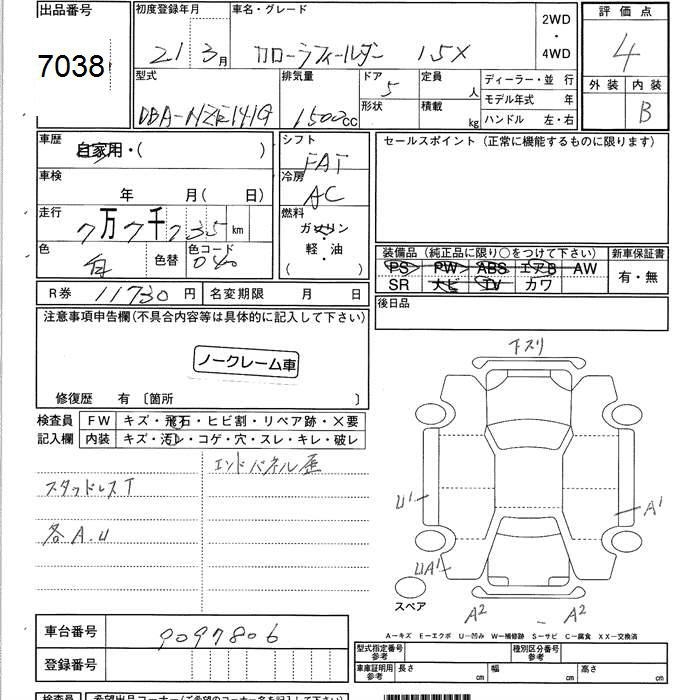 出品番号
7038
初度登録年月
21 3月
車名・グレード
カローラフィールダー 1.5X
2WD
・
4WD
評価点
4
外装 内装
B
型式
DBA-NZE141G
排気量
1500cc
ドア
5
形状
定員
人
積載
kg
ディーラー・並 行
モデル年式 年
ハンドル 左・右
車歴
自家用・( )
車検
年 月( 日)
走行
7万7千235km
色
白
色替
色コード
040
シフト
FAT
冷房
AC
燃料
ガソリン
軽・油
( )
セールスポイント(正常に機能するものに限ります)
装備品(純正品に限り○をつけて下さい)
PS PW ABS エアB AW
SR ナビ TV カワ
新車保証書
有・無
後日品
R券 11730円
名変期限 月 日
注意事項申告欄(不具合内容等は具体的に記入して下さい)
ノークレーム車
修復歴 有〔箇所 〕
検査員
記入欄
FW キズ・飛石・ヒビ割・リペア跡・×要
内装 キズ・汚レ・コゲ・穴・スレ・キレ・破レ
エンドパネル歪
スタッドレスT
各A.U
下スリ
U1
A1
UA1
スペア
A2
A2
A−キズ E−エクボ U−凹み W−補修跡 S−サビ C−腐食 XX−交換済
車台番号
9097806
登録番号
型式指定番号
参考
種別区分番号
参考
車庫証明用
参考
長さ cm
幅 cm
高さ cm
検査員
希望出品コーナー(ご希望のコーナー名を記入して下さい)